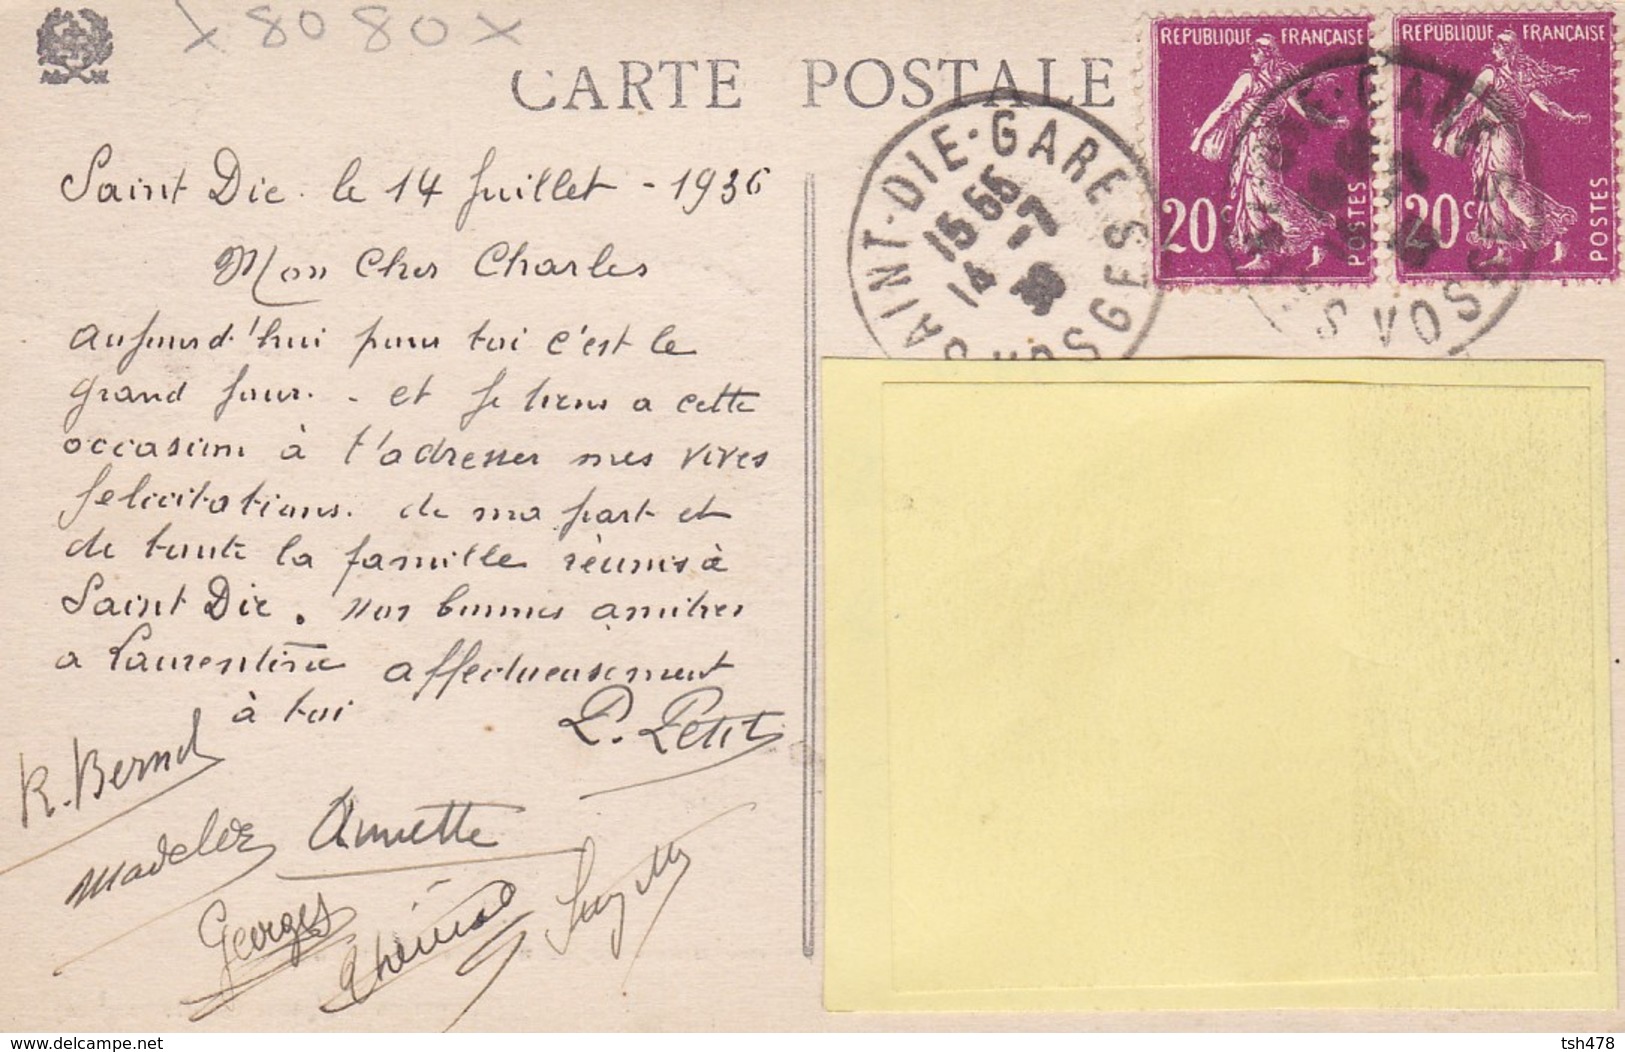 x 8080 x
CARTE POSTALE
REPUBLIQUE FRANÇAISE
20c
POSTES
REPUBLIQUE FRANÇAISE
20c
POSTES
SAINT-DIE-GARE
VOSGES
15 55
14 -7
36
Saint Die. le 14 Juillet - 1936
Mon Cher Charles
aujourd'hui pour toi c'est le
grand Jour. - et Je tiens a cette
occasion à t'adresser mes vives
félicitations. de ma part et
de toute la famille réunis à
Saint Die. nos bonnes amitiés
a Laurentine affectueusement
à toi
P. Petit
R. Bernd
Annette
Georges
Thérèse
Suzette
www.delcampe.net
tsh478